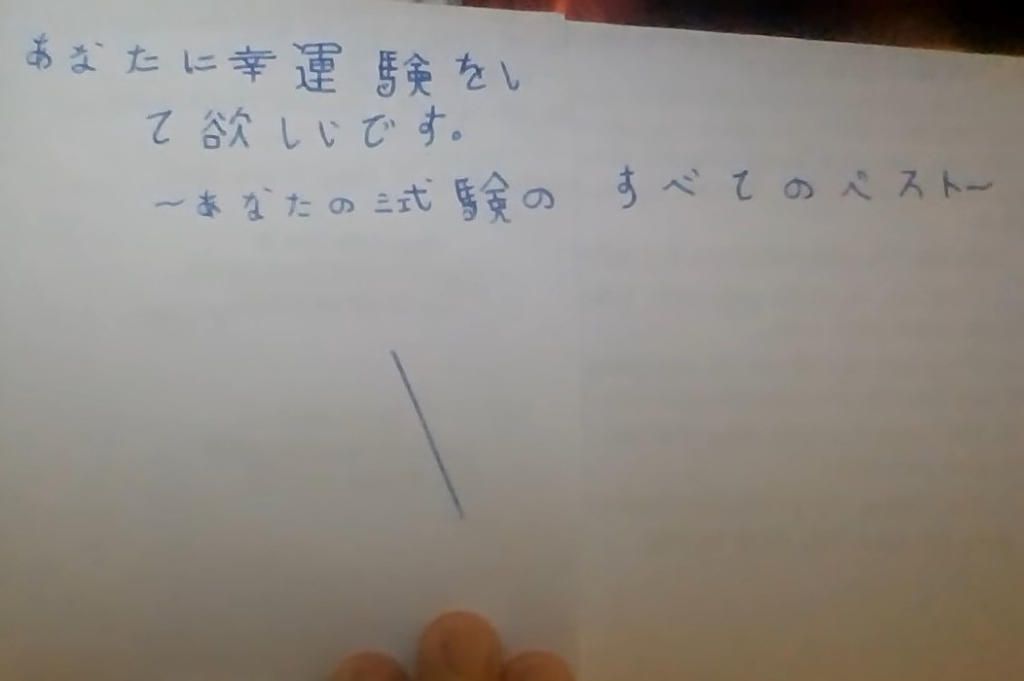 あなたに幸運験をし
て欲しいです。
～あなたの試験の すべてのベスト～